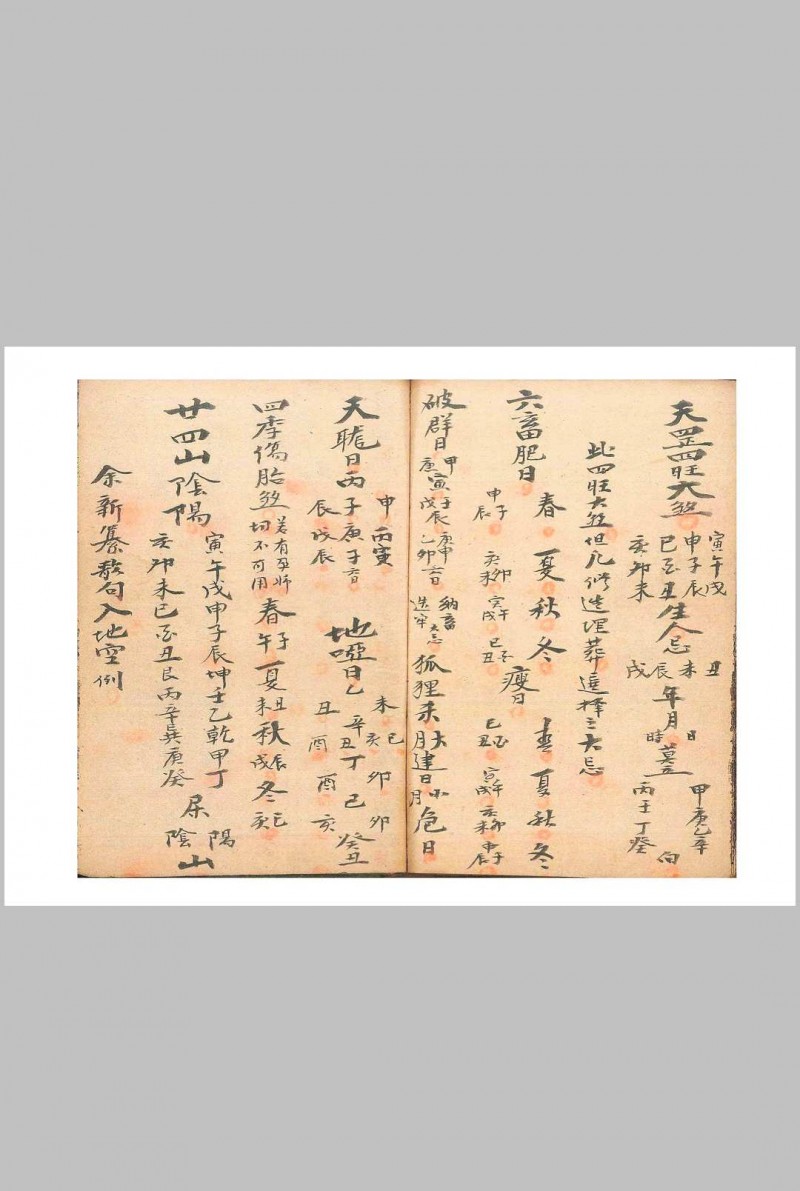 天罡四旺大煞 寅午戌 申子辰 巳酉丑 亥卯未 生人忌 丑 未 辰 戌 年月日時 莫立 甲庚乙辛 丙壬丁癸 向
此四旺大煞但凡修造埋葬選擇之大忌
六畜肥日 春 申子辰 夏 亥卯未 秋 寅午戌 冬 巳酉丑 瘦日 春 巳酉丑 夏 寅午戌 秋 亥卯未 冬 申子辰
破群日 甲 庚寅 壬辰 戊辰 庚申 乙卯 納畜 造牢 大忌 狐狸 大 月建日 小 月 危日
天聾日 丙子 丙寅 庚子 申 辰 戊辰 地啞日 乙 未 巳 亥 丑 酉 辛丑 丁 卯 酉 己 卯 亥 癸丑
四季傷胎煞 若有孕婦切不可用 春 子午 夏 丑未 秋 辰戌 冬 巳亥
廿四山陰陽 寅午戌申子辰坤壬乙乾甲丁 屬陽山 亥卯未巳酉丑艮丙辛巽庚癸 屬陰山
余新纂 句入地空例